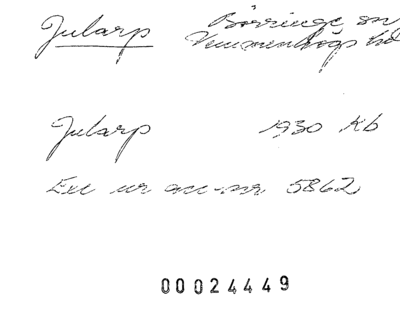 Jularp Börringe sn
Vemmenhögs hd
Jularp 1930 Kb
Exc ur acc-nr. 5862
00024449